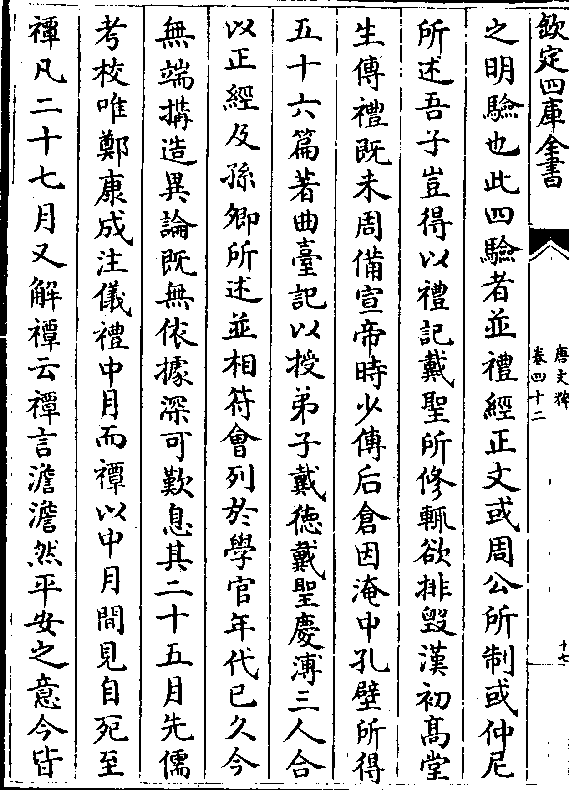 欽定四庫全書
唐文粹
卷四十二
十七
之明驗也此四驗者並禮經正文或周公所制或仲尼
所述吾子豈得以禮記戴聖所修輒欲排毀漢初髙堂
生傳禮既未周備宣帝時少傅后倉因淹中孔壁所得
五十六篇著曲臺記以授弟子戴徳戴聖慶溥三人合
以正經及孫卿所述並相符會列於學官年代已久今
無端搆造異論既無依據深可歎息其二十五月先儒
考校唯鄭康成注儀禮中月而禫以中月間見自死至
禫凡二十七月又解禫云禫言澹澹然平安之意今皆